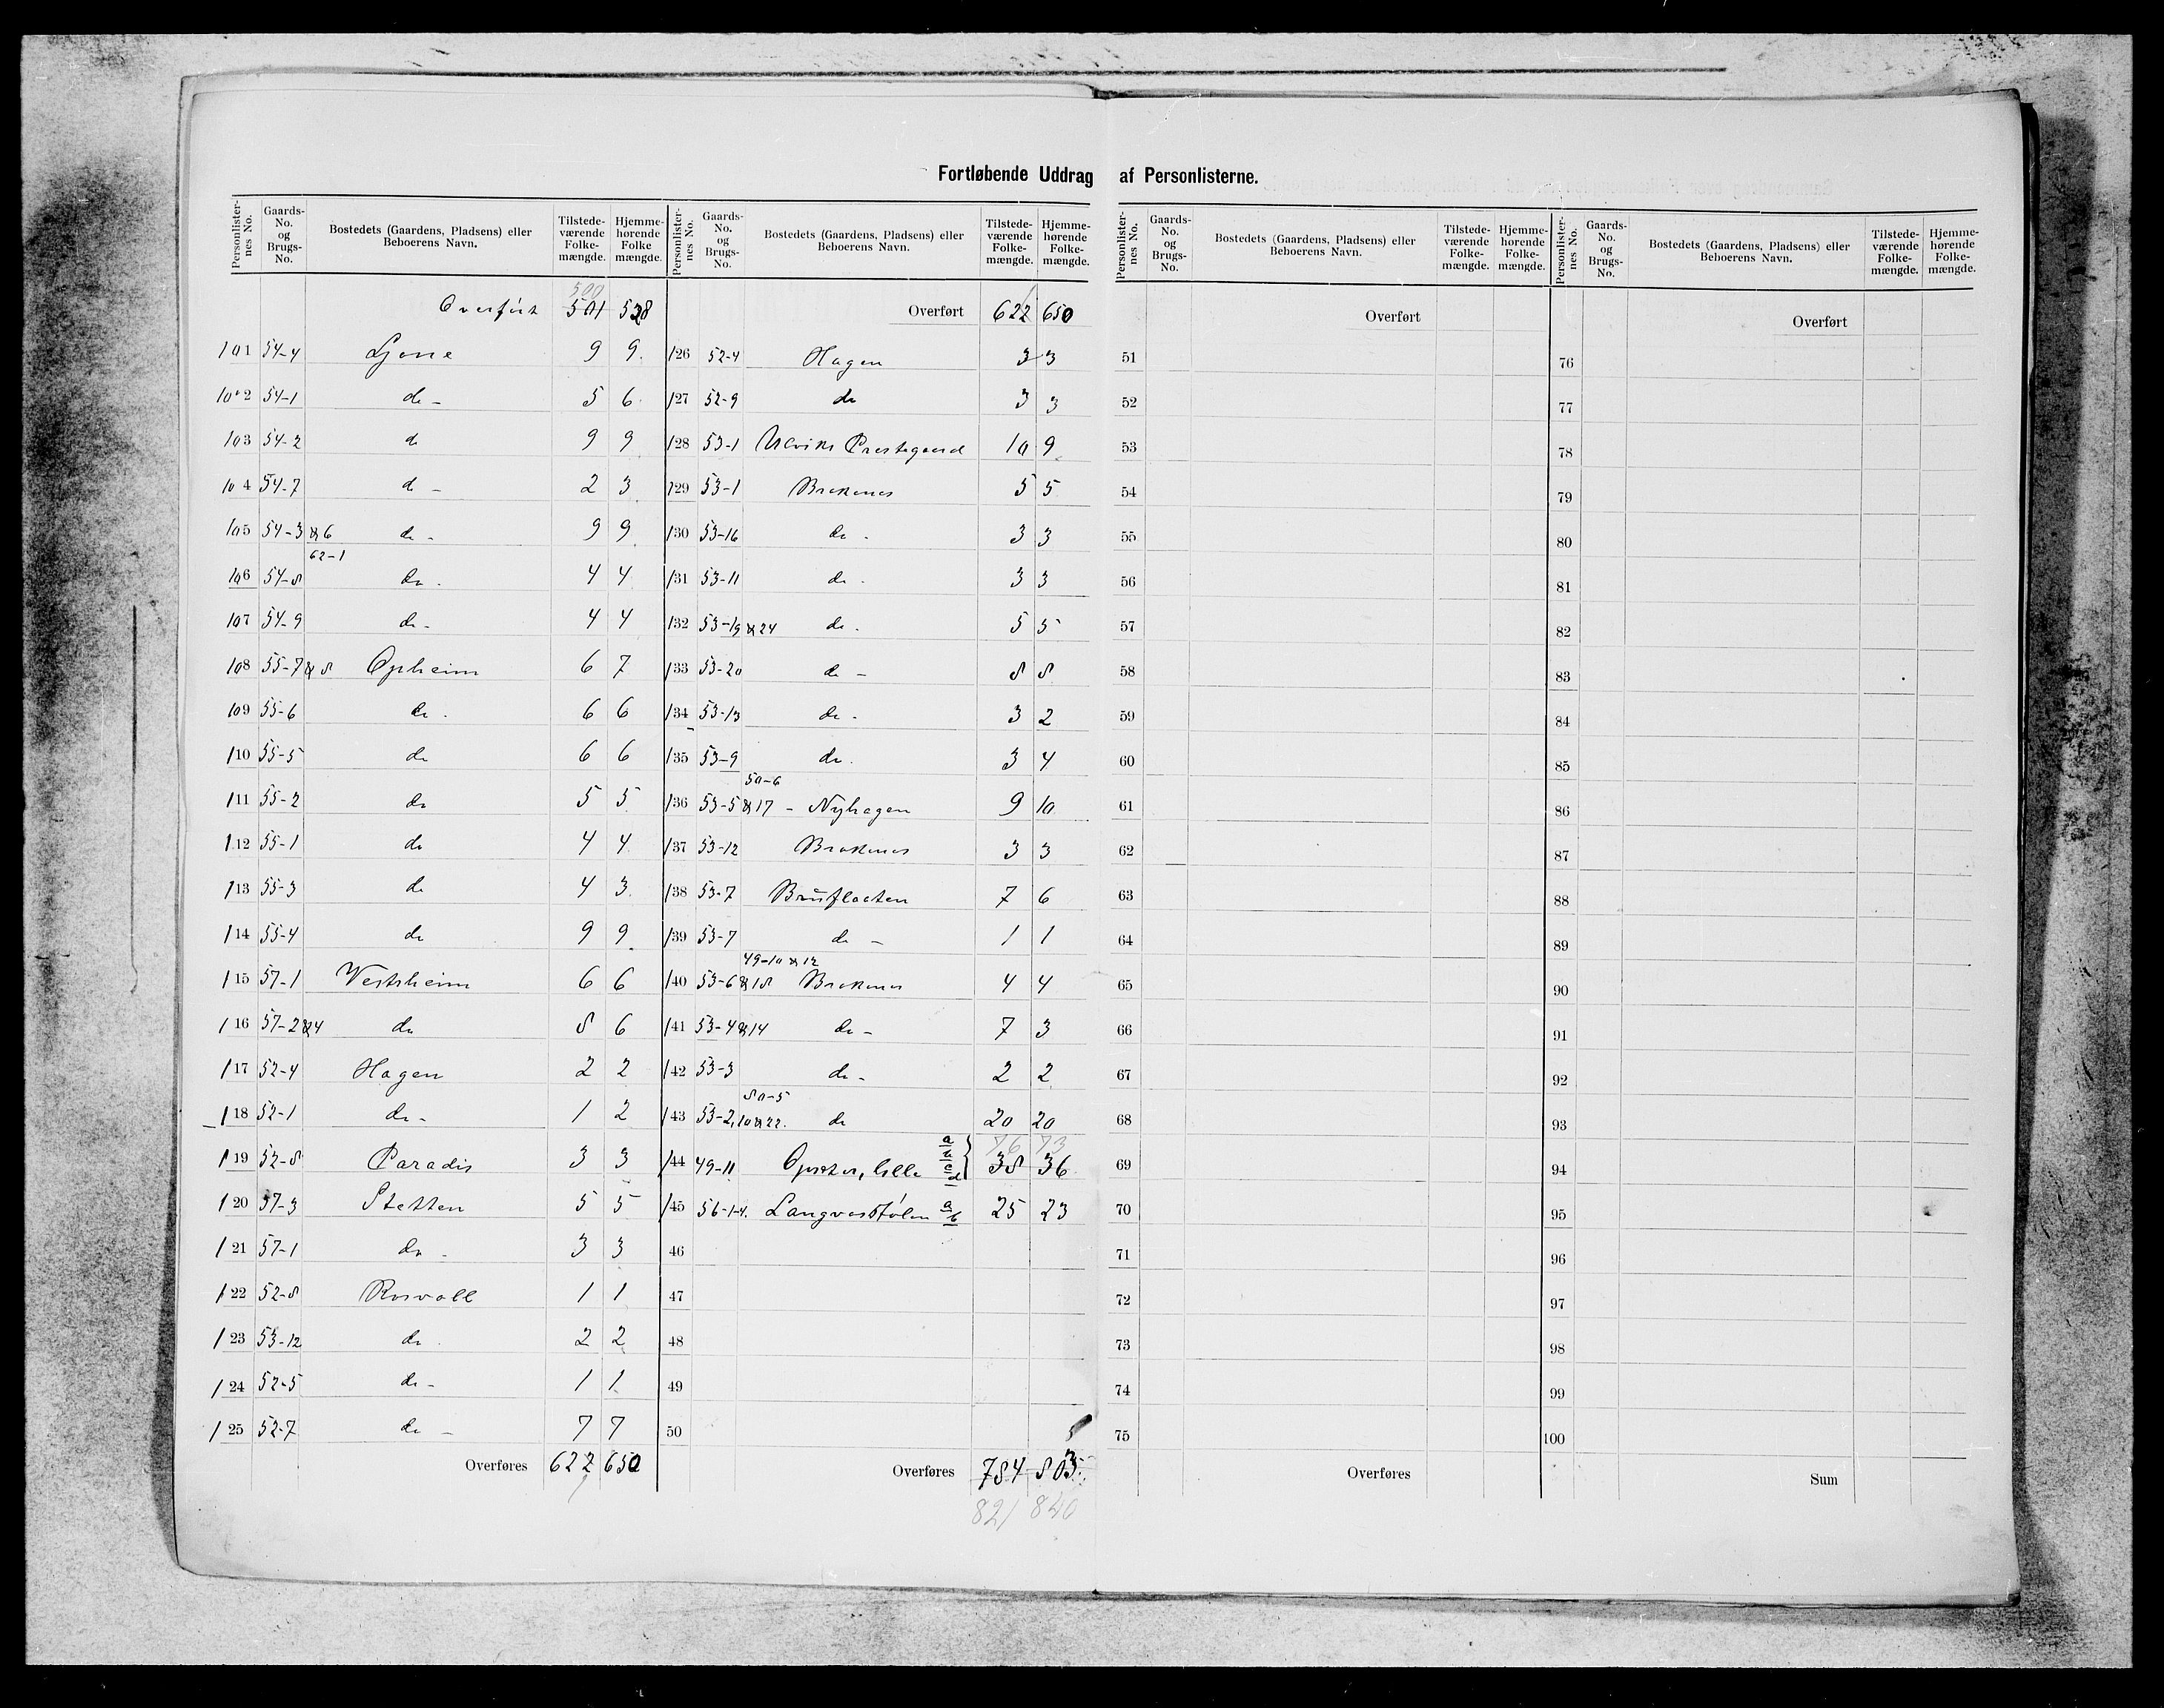 Fortløbende Uddrag af Personlisterne.
Personlister-nes No. Gaards-No. og Brugs-No. Bostedets (Gaardens, Pladsens) eller Beboerens Navn. Tilstede-værende Folke-mængde. Hjemme-hørende Folke mængde.
Overført 501 528
101 54-4 Ljone 9 9
102 54-1 do - 5 6
103 54-2 do 9 9
104 54-7 do - 2 3
105 54-3 & 6 do - 9 9
62-1
106 54-8 do - 4 4
107 54-9 do - 4 4
108 55-7 & 8 Opheim 6 7
109 55-6 do - 6 6
110 55-5 do 6 6
111 55-2 do 5 5
112 55-1 do 4 4
113 55-3 do 4 3
114 55-4 do 9 9
115 57-1 Vestrheim 6 6
116 57-2 & 4 do 8 6
117 52-4 Hagen 2 2
118 52-1 do - 1 2
119 52-8 Paradis 3 3
120 57-3 Stetten 5 5
121 57-1 do - 3 3
122 52-8 Rosvall 1 1
123 53-12 do - 2 2
124 52-5 do - 1 1
125 52-7 do - 7 7
Overføres 622 650
Personlister-nes No. Gaards-No. og Brugs-No. Bostedets (Gaardens, Pladsens) eller Beboerens Navn. Tilstede-værende Folke-mængde. Hjemme-hørende Folke-mængde.
Overført 622 650
126 52-4 Hagen 3 3
127 52-9 do 3 3
128 53-1 Ulviks Prestegaard 10 9
129 53-1 Brakenes 5 5
130 53-16 do - 3 3
131 53-11 do - 3 3
132 53-19 & 24 do - 5 5
133 53-20 do - 8 8
134 53-13 do - 3 2
135 53-9 do - 3 4
50-6
136 53-5 & 17 - Nyhagen 9 10
137 53-12 Brakenes 3 3
138 53-7 Bruflaaten 7 6
139 53-7 do - 1 1
49-10 & 12
140 53-6 & 18 Brakenes 4 4
141 53-4 & 14 do - 7 3
142 53-3 do - 2 2
50-5
143 53-2, 10 & 22. do 20 20
76 73
144 49-11 Opsæter, lille a b c d 38 36
145 56-1-4. Langvasstølen a b 25 23
46
47
48
49
50
Overføres 784 803
821 840
Personlister-nes No. Gaards-No. og Brugs-No. Bostedets (Gaardens, Pladsens) eller Beboerens Navn. Tilstede-værende Folke-mængde. Hjemme-hørende Folke-mængde.
Overført
51
52
53
54
55
56
57
58
59
60
61
62
63
64
65
66
67
68
69
70
71
72
73
74
75
Overføres
Personlister-nes No. Gaards-No. og Brugs-No. Bostedets (Gaardens, Pladsens) eller Beboerens Navn. Tilstede-værende Folke-mængde. Hjemme-hørende Folke-mængde.
Overført
76
77
78
79
80
81
82
83
84
85
86
87
88
89
90
91
92
93
94
95
96
97
98
99
100
Sum